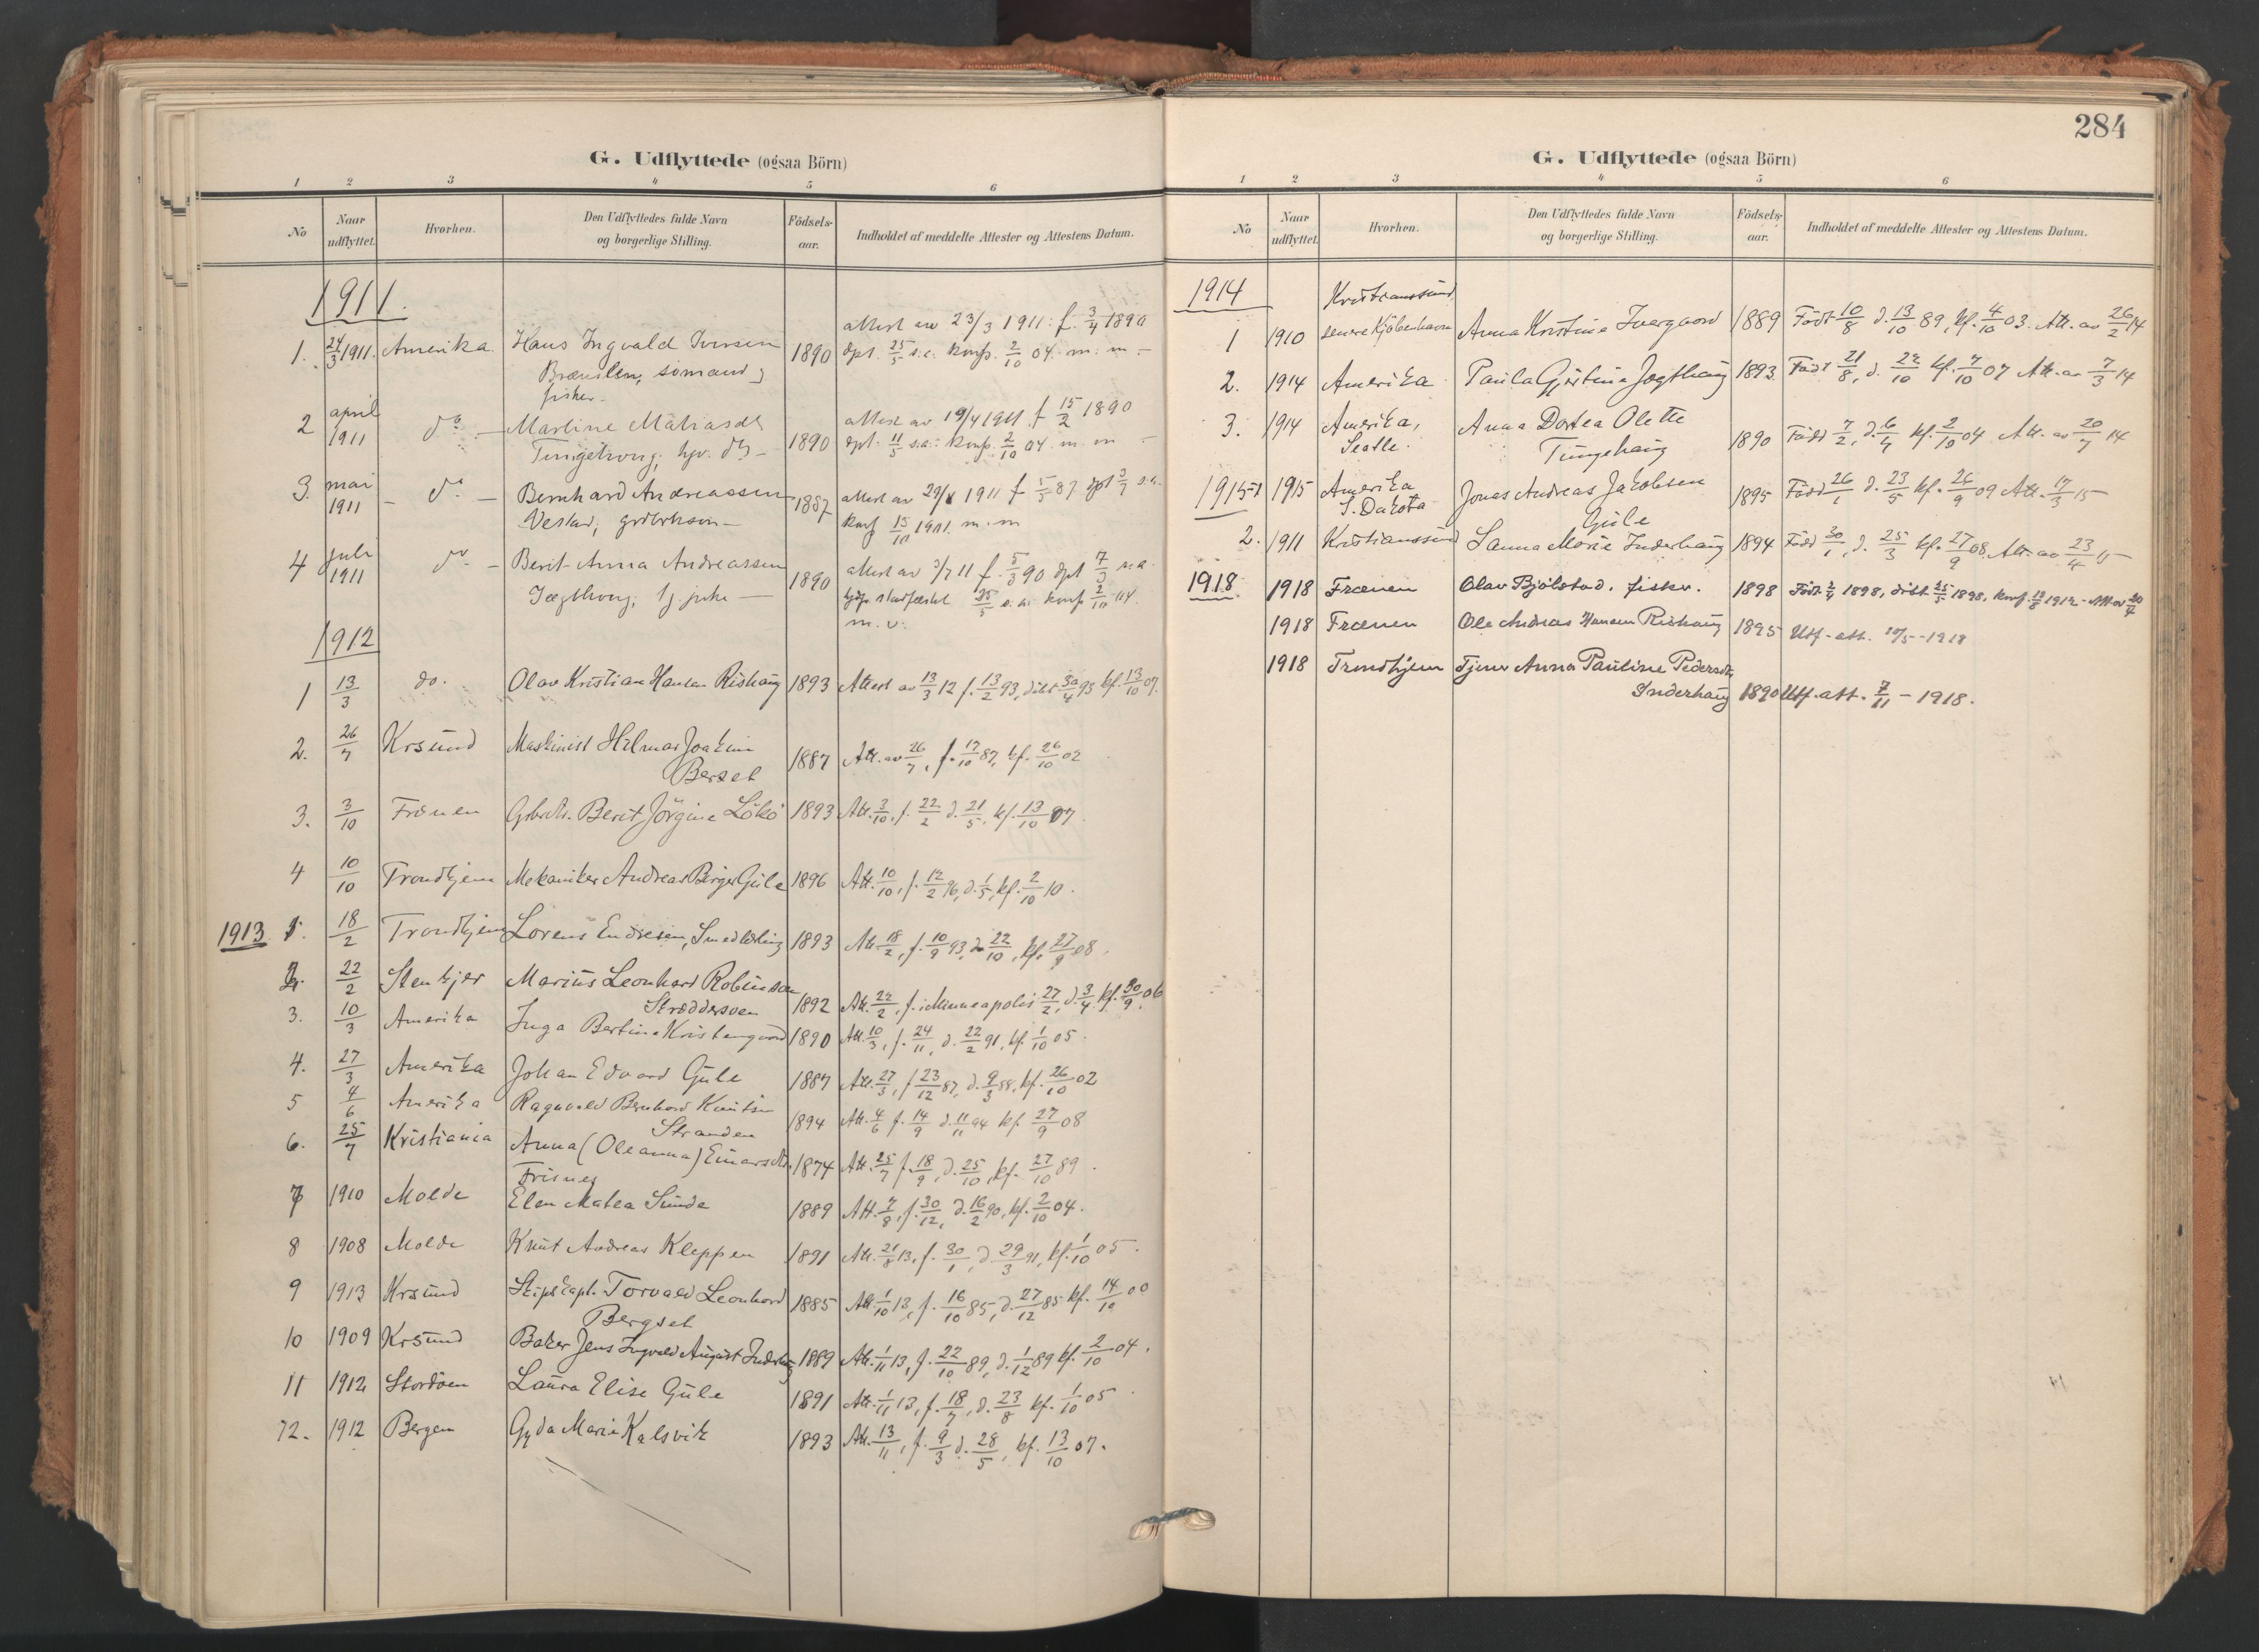 G. Udflyttede (ogsaa Börn)
1 2 3 4 5 6
No
Naar udflyttet.
Hvorhen.
Den Udflyttedes fulde Navn og borgerlige Stilling.
Födsels-aar.
Indholdet af meddelte Attester og Attestens Datum.
1911.
attest av 23/3 1911: f. 3/4 1890
1. 24/3 1911. Amerika. Hans Ingvald Iversen 1890 dpt. 25/5 s.a. konf. 2/10 04. m. m. -
sömand,
fisker.
2 april 1911 do - Martine 1890 attest av 19/4 1911 f 15/2 1890
dpt. 11/5 s.a. konf. 2/10 04. m. m -
3. mai 1911 - do - Bernhard Andreassen 1887 attest av 1911 f 1/5 87 dpt s.a.
konf 15/10 1901. m. m
4 juli 1911 do - Berit Anna Andreassen 1890 attest av 3/7 11 f. 5/3 90 dpt s.a.
25/5 s.a. konf 2/10 04.
m. v.
1912
1 13/3 do. Olav Kristian Hansen Rishaug 1893 Attest av 13/3 12 f. 13/2 93, döbt 30/4 93 kf. 13/10 07.
2. 26/7 Krsund Maskinist Hilmar Joakim
Berset 1887 Att. av 26/7, f. 17/10 87, kf. 26/10 02
3. 3/10 Frænen Gbrdtr. Berit Jörgine Lökö 1893 Att. 3/10, f. 22/2 d. 21/5, kf. 13/10 07.
4 10/10 Trondhjem Mekaniker Andreas Birger Gule 1896 Att. 10/10, f. 12/2 96, d. 1/5, kf. 2/10 10.
1913. 1. 18/2 Trondhjem Lorens Endresen, Smedlærling 1893 Att. 18/2, f. 10/9 93, d. 22/10, kf. 27/9 08.
2. 22/2 Stenkjer Marius Leonhard Robinson
1892 Att. 22/2, f. i Minneapolis 27/2, d. 3/4, kf. 30/9 06
3. 10/3 Amerika Inga Bertine 1890 Att. 10/3, f. 24/11, d. 22/2 91, kf. 1/10 05.
4. 27/3 Amerika Johan Edvard Gule 1887 Att. 27/3, f 23/12 87, d. 9/3 88, kf. 26/10 02
5 4/6 Amerika Ragnvald Bernhard Knutsen
Stranden 1894 Att. 4/6 f. 14/9 d. 11/11 94 kf. 27/9 08
6. 25/7 Kristiania Anna (Oleanna) Einarsdtr. 1874 Att. 25/7 f. 18/9, d. 25/10, kf. 27/10 89.
7 1910 Molde Elen Matea Sunde 1889 Att. 7/8, f. 30/12, d. 16/2 90, kf. 2/10 04.
8 1908 Molde Knut Andreas Kleppen 1891 Att. 21/8 13, f. 30/1, d. 29/3 91, kf. 1/10 05.
9 1913 Krsund Skipskapt. Torvald Leonhard
Bergset 1885 Att. 1/10 13, f. 16/10 85, d. 27/12 85 kf. 14/10 00
10 1909 Krsund Baker Jens Ingvald August Inderhaug 1889 Att. 1/11 13, f. 22/10 89, d. 1/12 89 kf. 2/10 04.
11 1912 Stordöen Laura Elise Gule 1891 Att. 1/11 13, f. 18/7, d. 23/8 kf. 1/10 05.
12. 1912 Bergen Gyda Marie Kalsvik 1893 Att. 13/11, f. 9/3 d. 28/5, kf. 13/10 07.
284
G. Udflyttede (ogsaa Börn)
1 2 3 4 5 6
No
Naar udflyttet.
Hvorhen.
Den Udflyttedes fulde Navn og borgerlige Stilling.
Födsels-aar.
Indholdet af meddelte Attester og Attestens Datum.
1914 Kristianssund
1 1910 senere Kjöbenhavn Anna Kristine Ivergaard 1889 Födt 10/8 d. 13/10 89, kf. 4/10 03. Att. av 26/2 14
2. 1914 Amerika Paula Gjertine Jægthaug 1893. Födt 21/8, d. 22/10 kf. 7/10 07 Att. av 7/3 14
3. 1914 Amerika, Seatle. Anna Dortea Olette
Tungehaug 1890 Född 7/2, d. 6/4 kf. 2/10 04 Att. av 20/7 14
1915 1 1915 Amerika S. Dakota Jonas Andreas Jakobsen
Gule 1895 Född 26/1 d. 23/5 kf. 26/9 09 Att. 17/3 15
2. 1911 Kristianssund Sanna Marie Inderhaug 1894 Född 30/1, d. 25/3 kf. 27/9 08. Att. av 23/4 15
1918. 1918 Frænen Olav Bjölstad. fisker. 1898 Födt 2/4 1898, döbt 25/5 1898, konf. 18/8 1912 - Att av 20/4
1918 Frænen Ole Andreas Hansen Rishaug 1895 Utf. att. 10/5 - 1918
1918 Trondhjem Tjener Anna Pauline Pedersdtr.
Inderhaug 1890 Utf. att. 7/11 - 1918.